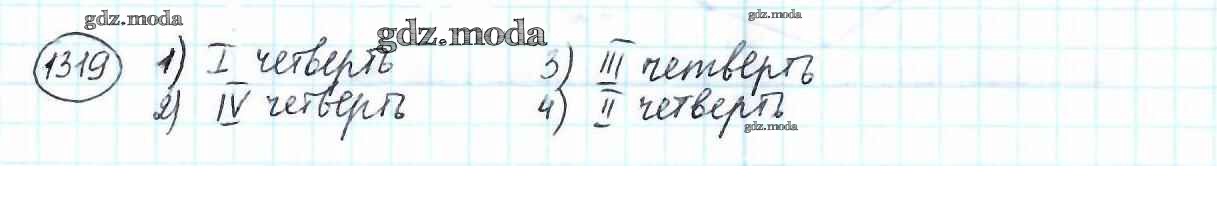 gdz.moda
gdz.moda
gdz.moda
1319 1) I четверть 3) III четверть
2) IV четверть 4) II четверть
gdz.moda